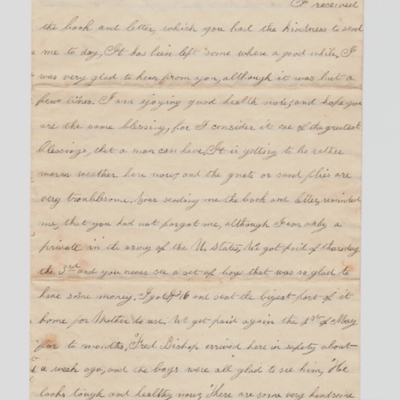 I received
the book and letter, which you had the kindness to send
me to day, It has lein left some where a good while, I
was very glad to hear from you, although it was but a
few lines. I am ejoying good health now, and hope you
are the same blessing, for I consider it one of the greatest
blessings, that a man can have, It is getting to be rather
warm weather here now, and the gnats or sand flies are
very troublesome. Your sending me the book and letter, reminded
me, that you had not forgot me, although I am only a
private in the army of the U. States, We got paid of thursday
the 3rd and you never see a set of boys that was so glad to
have some money. I got $16 and sent the bigest part of it
home for Mother to use. We get paid again the 1st of May
for to months, Fred Bishop arrived here in safety about
a week ago, and the boys were all glad to see him, He
looks tough and healthy now, There are some very handsome